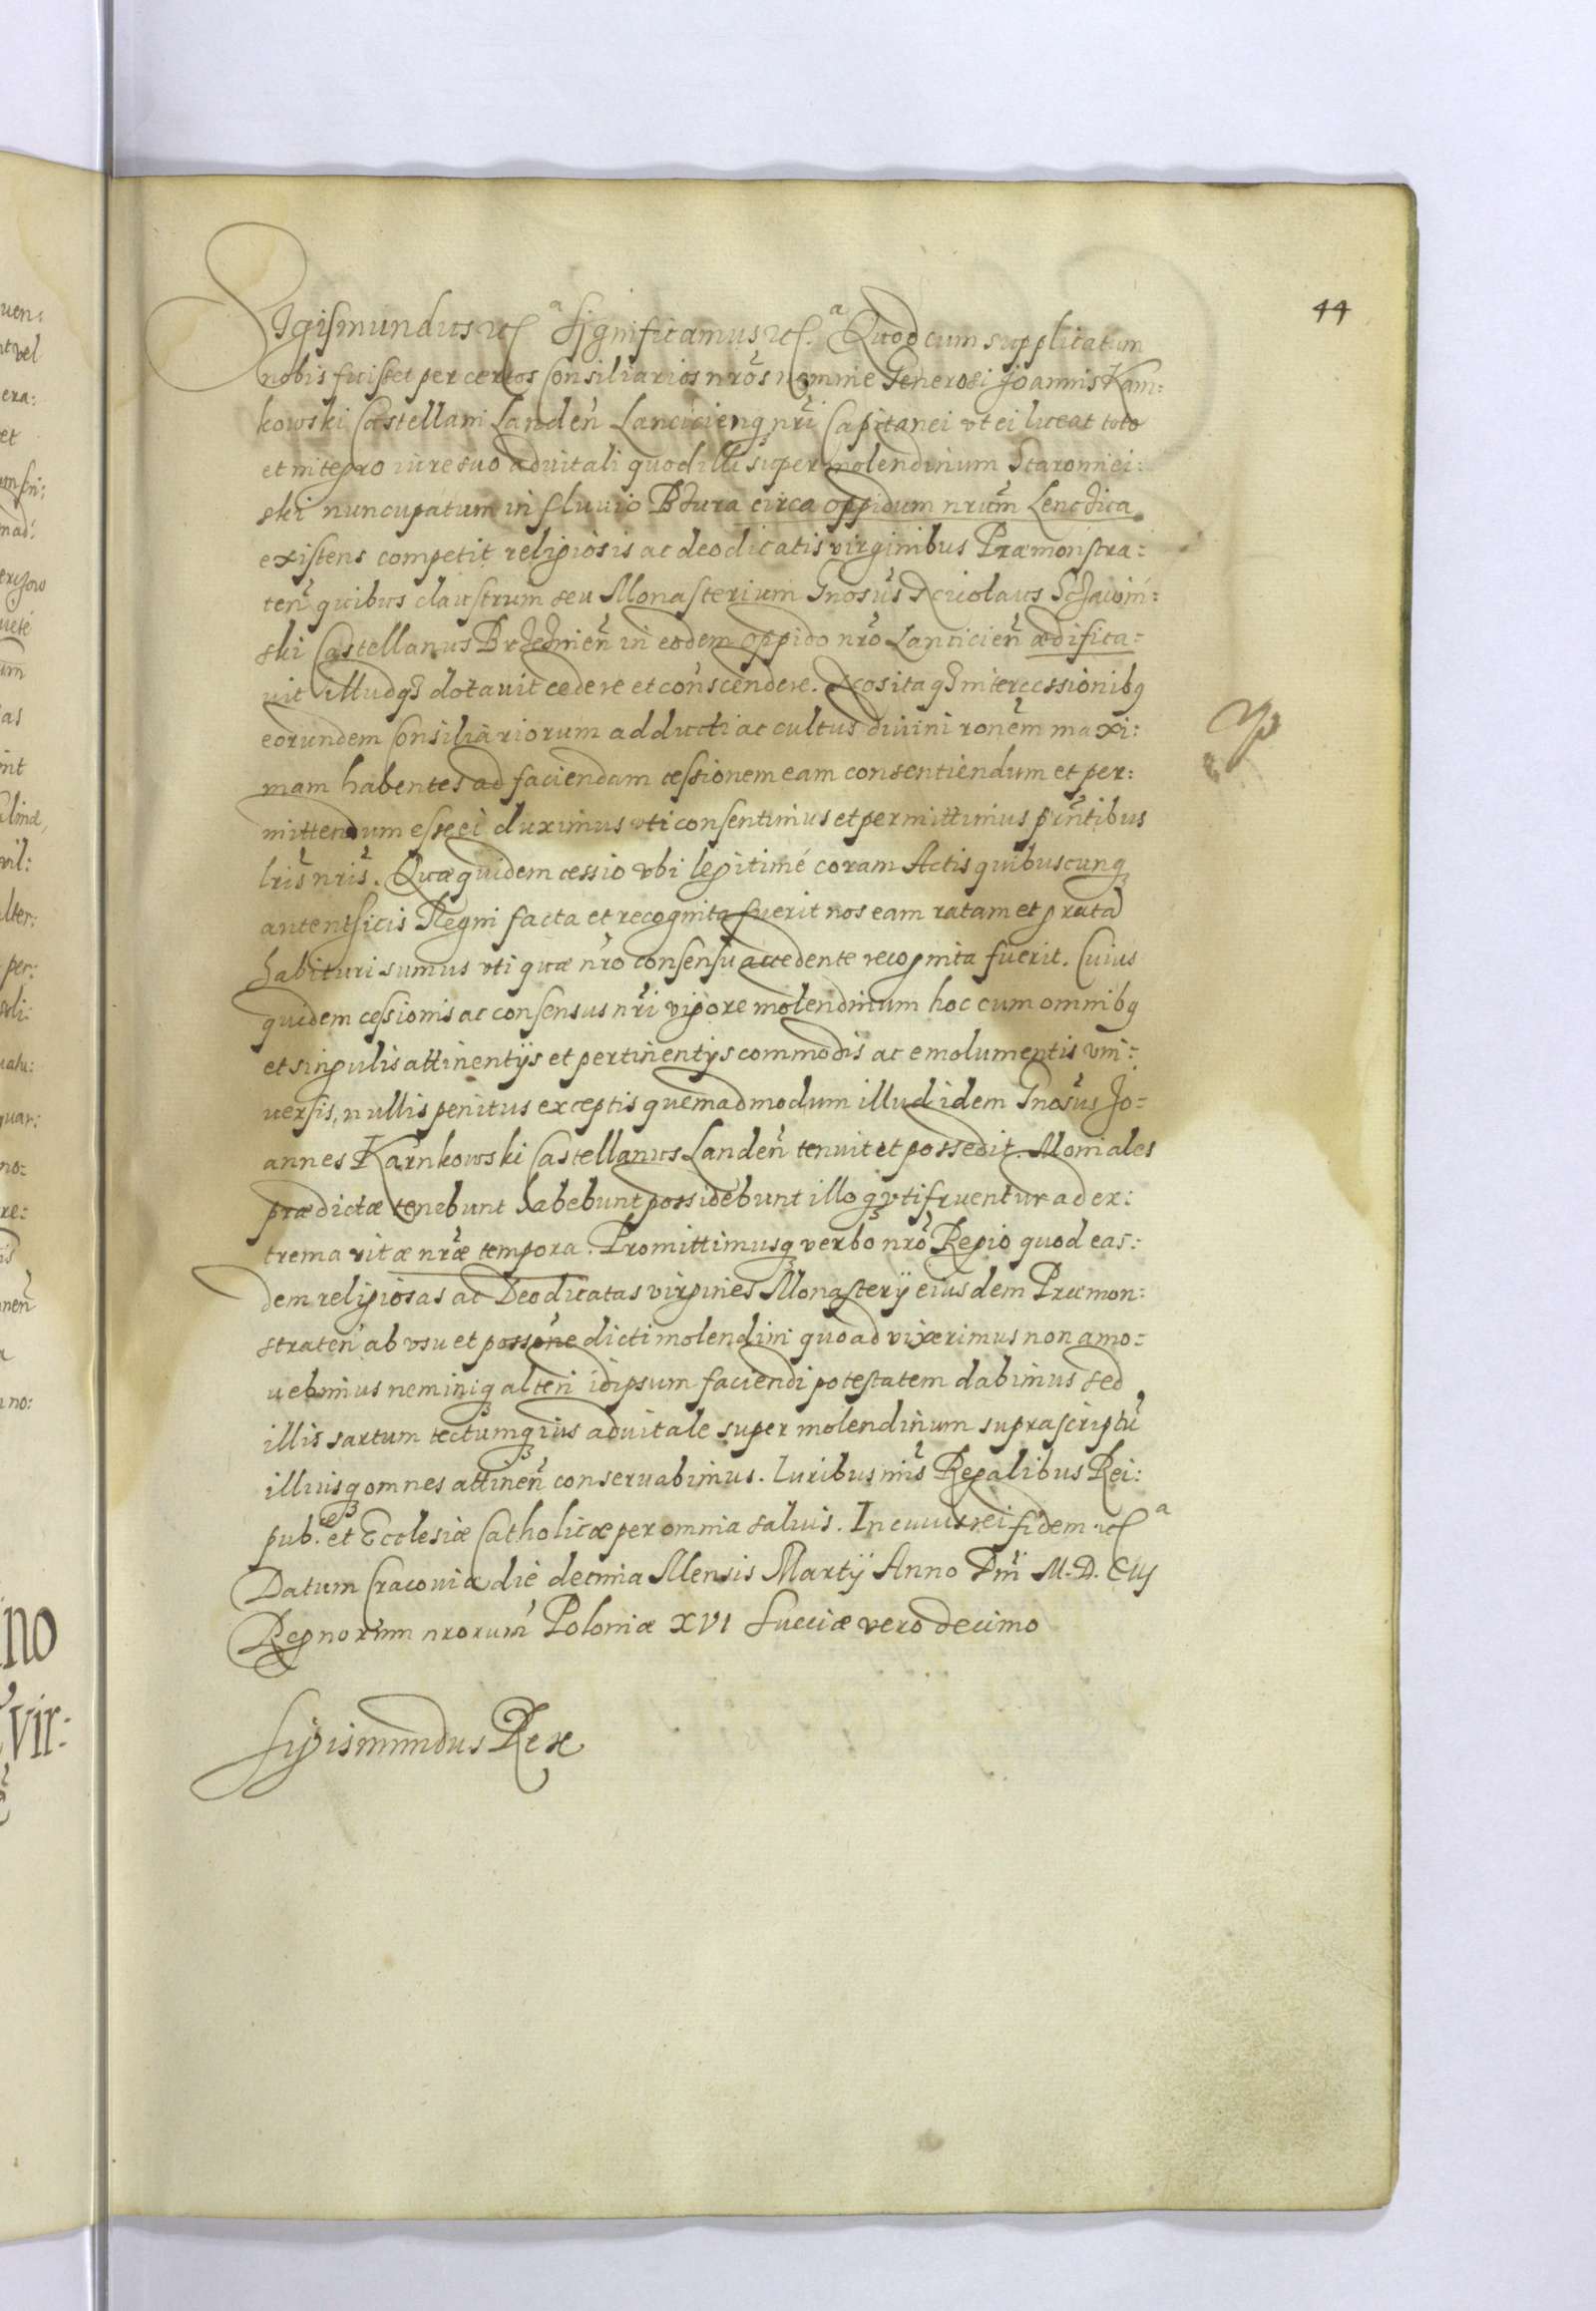 44
Sigismundus etc.ª Significamus etc.ª Quod cum supplicatum
nobis fuisset per certos Consiliarios nrõs nomine Generosi Joannis Karn:
kowski Castellani Landeñ Lancicienq nrĩ Capitanei vt ei liceat toto
et integro iure suo aduitali quod illi super molendinum Staromiei:
ski nuncupatum in fluuio Bzura circa oppidum nrũm Lenczica
existens competit religiosis ac deodicatis virginibus Præmonstra:
teñ quibus claustrum seu Monasterium Gnosũs Nicolaus Szczawiń:
ski Castellanus Brzezineñ in eodem oppido nrõ Lancicieñ ædifica:
uit illudq3 dotauit cedere et conscendere. Nos itaq3 intercessionibq
eorundem Consiliariorum adducti ac cultus diuini ronẽm maxi:
mam habentes ad faciendam cessionem eam consentiendum et per:
mittendum esse ei duximus vti consentimus et permittimus pñtibus
lrĩs nrĩs. Quæ quidem cessio vbi legitimé coram Actis quibuscunq
autentsicis Regni facta et recognita fuerit nos eam ratam et gratã
habituri sumus vti quæ nrõ consensu accedente recognita fuerit. Cuius
quidem cessionis ac consensus nrĩ vigore molendinum hoc cum omnibq
et singulis attinentijs et pertinentijs commodis ac emolumentis vni:
uersis, nullis penitus exceptis quemadmodum illud idem Gnosũs Jo:
annes Karnkowski Castellanus Landeñ tenuit et possedit. Moniales
prædictæ tenebunt habebunt possidebunt illoq3 vti fruentur ad ex:
trema vitæ nrǣ tempora. Promittimusq3 verbo nrõ Regio quod eas:
dem religiosas ac Deodicatas virgines Monasterij eiusdem Præmon:
strateñ ab vsu et possõne dicti molendini quoad vixerimus non amo:
uebimus neminiq3 alteri idipsum faciendi potestatem dabimus sed
illis sartum tectumq3 ius aduitale super molendinum suprascriptũ
illiusq3 omnes attineñ conseruabimus. Iuribus nrĩs Regalibus Rei:
pub. et Ecclesiæ Catholicæ per omnia saluis. In cuius rei fidem etc.ª
Datum Cracouiæ die decima Mensis Martij Anno Dñi M.D.CIIJ
Regnorum nrorum̃ Poloniæ XVI Sueciæ vero decimo
Sigismundus Rex